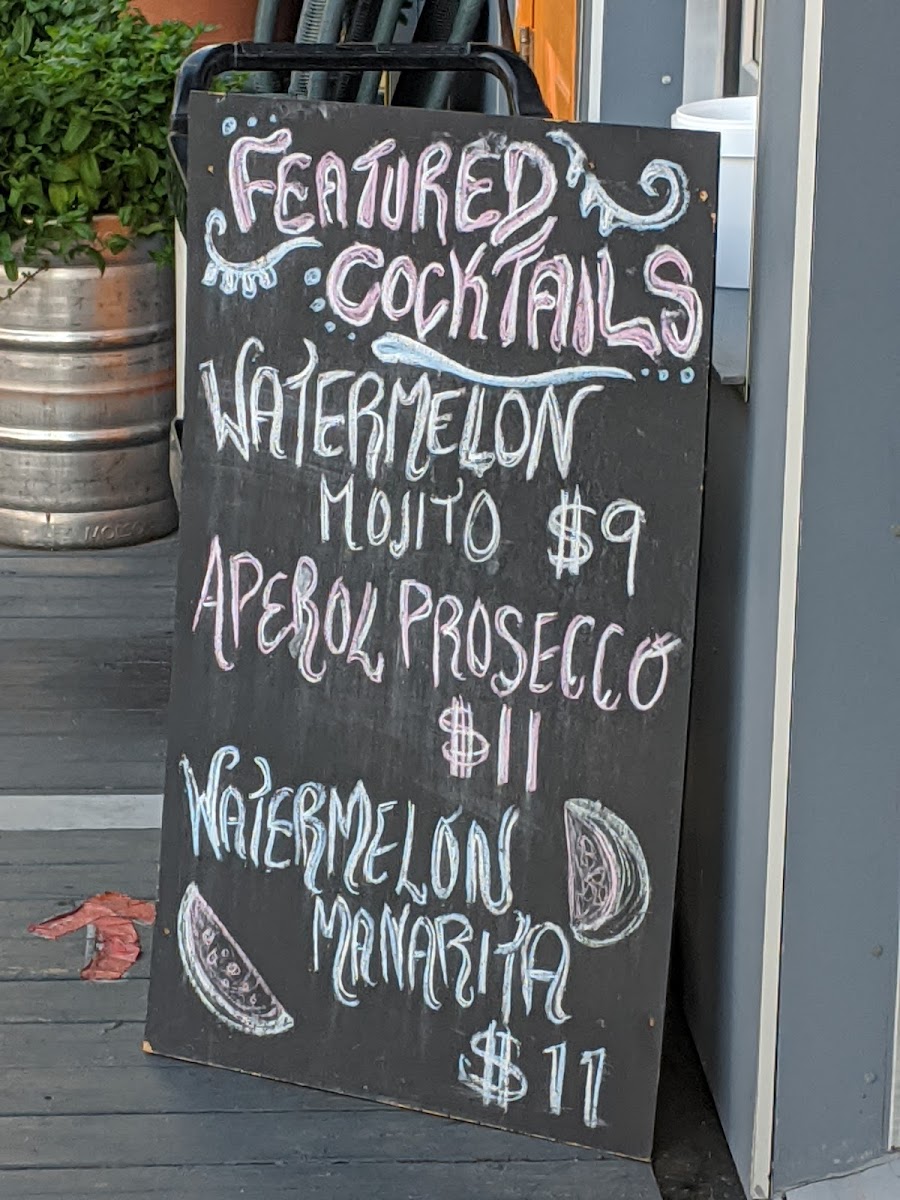 FEATURED
COCKTAILS
WATERMELON
MOJITO $9
APEROL PROSECCO
$11
WATERMELON
MANARITA
$11